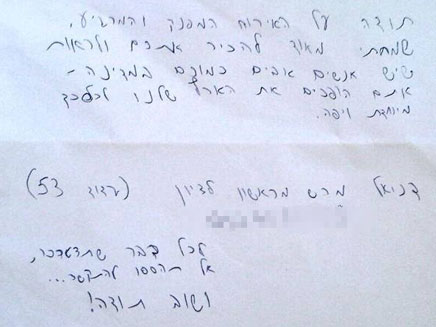 תודה על האירוח המפנק והמרגיע.
שמחתי מאוד להכיר אתכם ולראות
שיש אנשים אוהבים כמוכם במדינה -
אתם הופכים את הארץ שלנו לכל כך
מיוחדת ויפה.
דניאל מרש מראשון לציון (ערוד 53)
לכל דבר שתצטרכו,
אל תהססו להתקשר...
ושוב תודה!